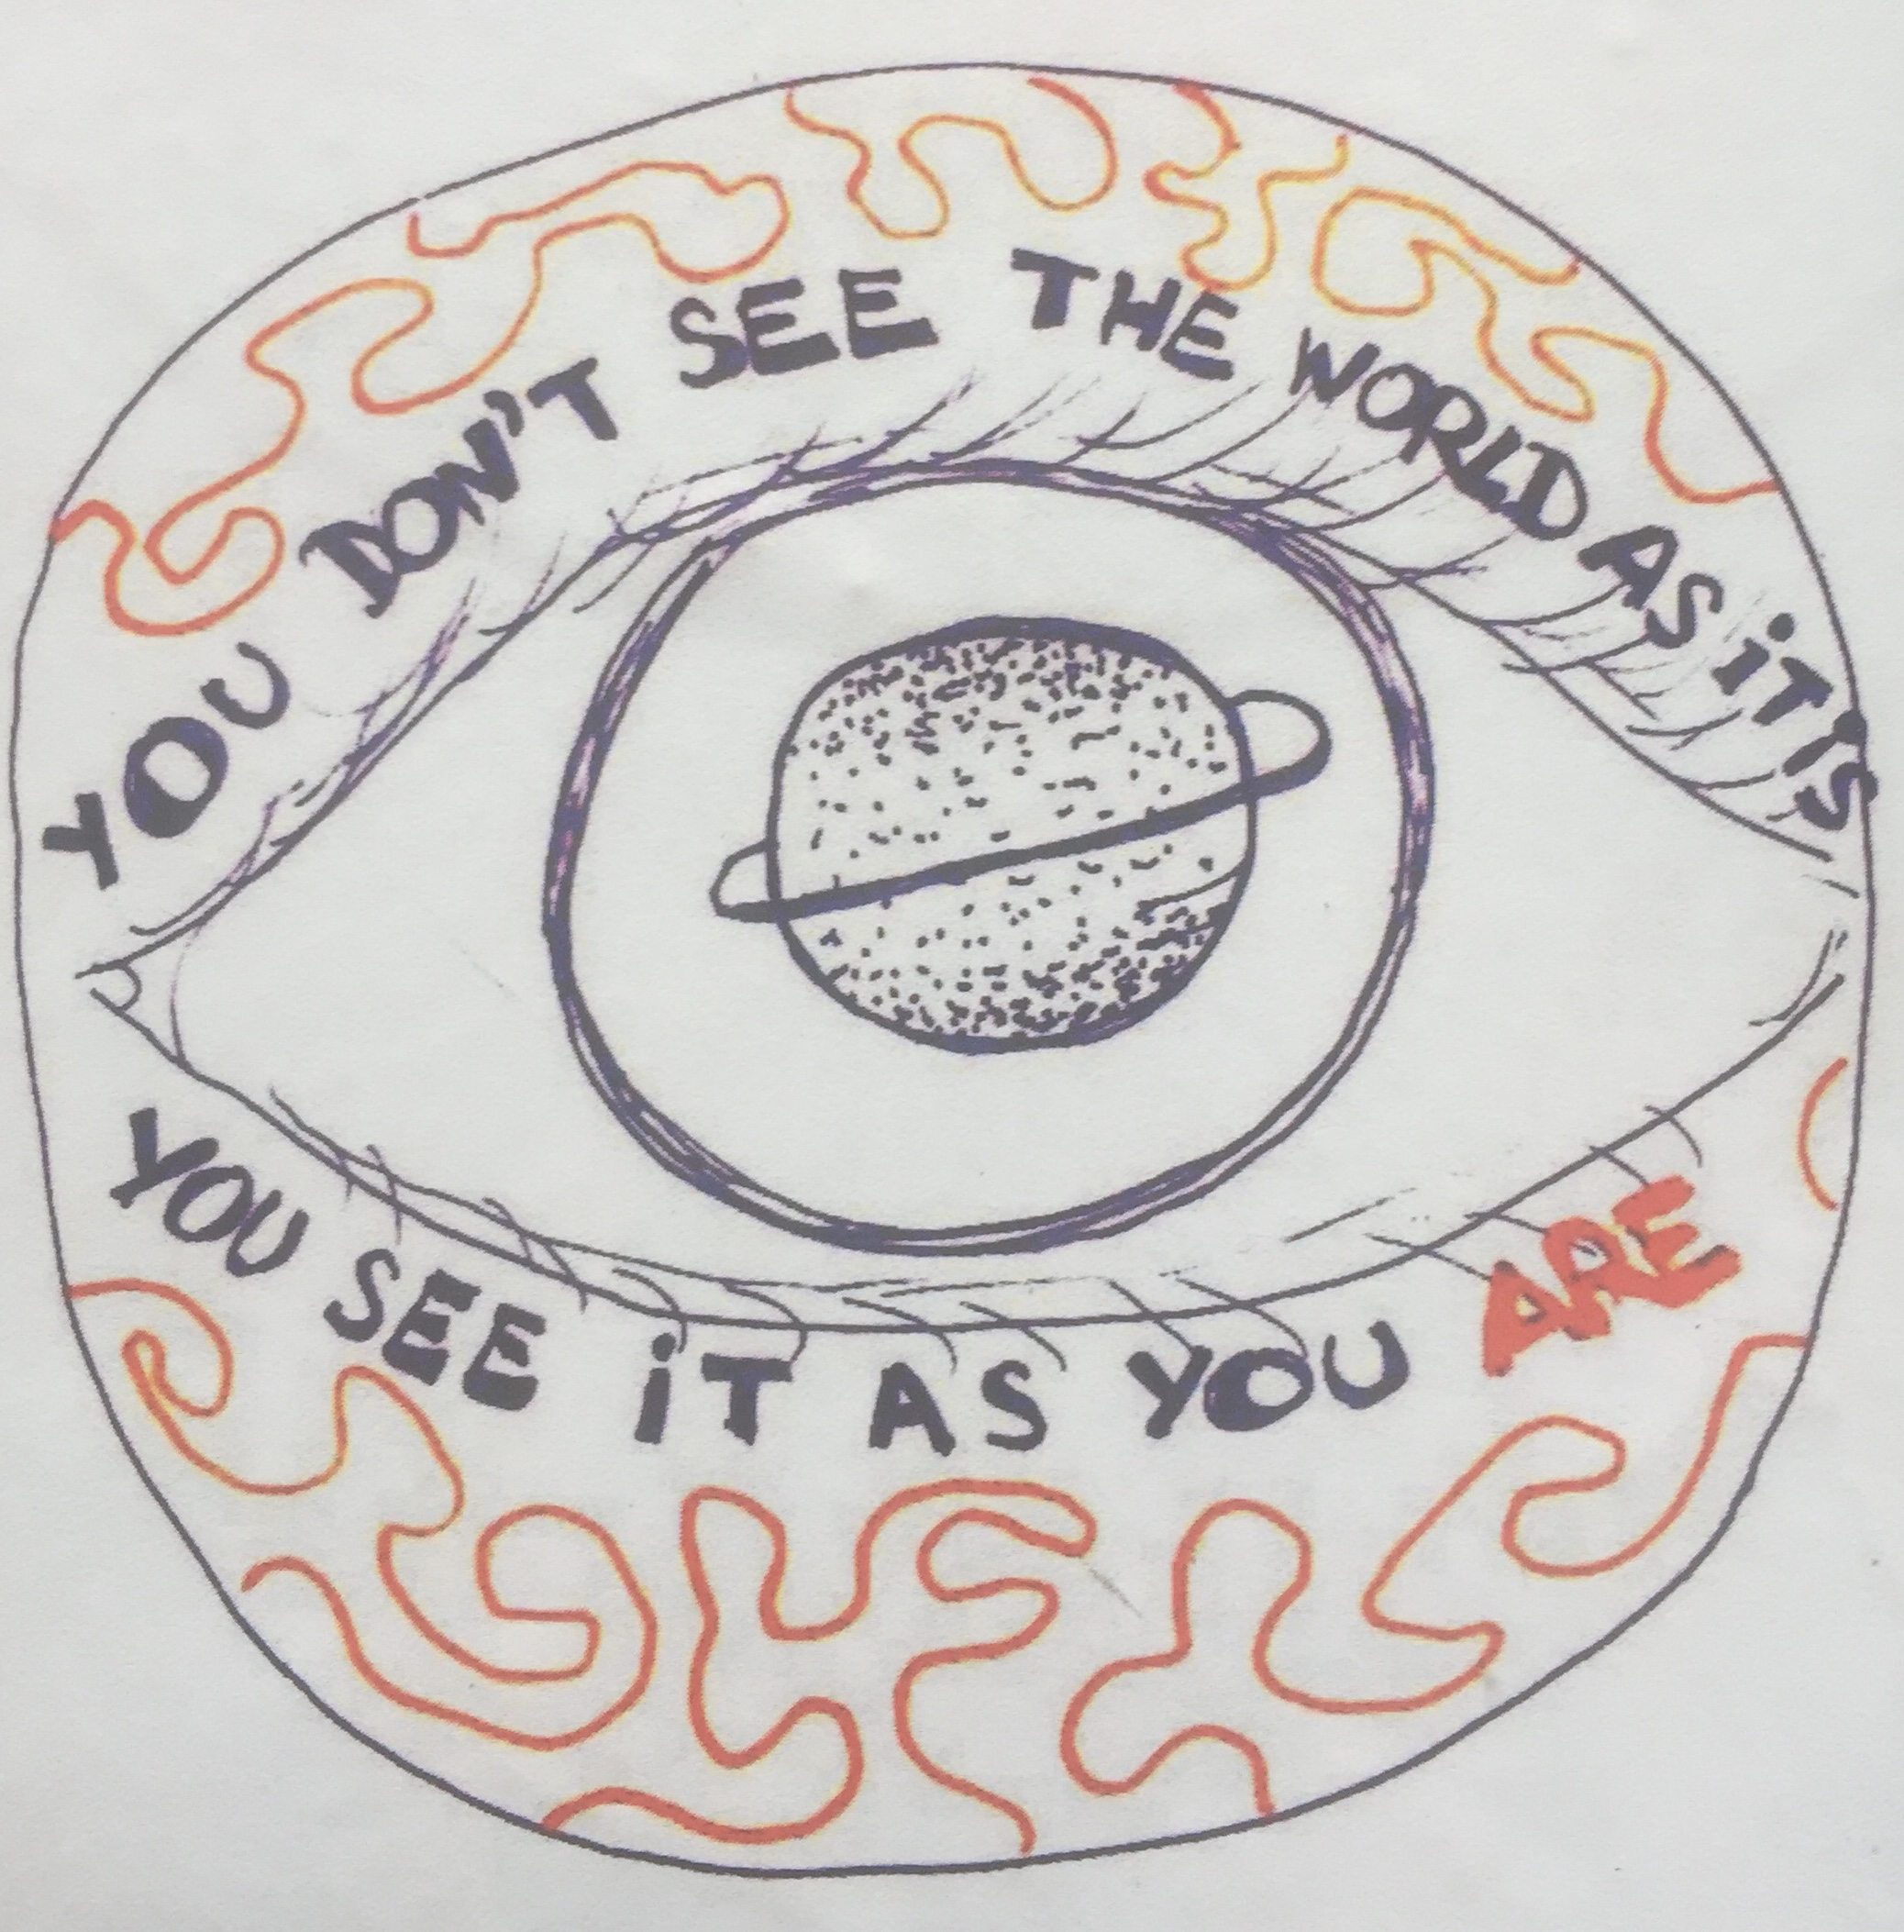 YOU DON'T SEE THE WORLD AS iT'S
YOU SEE iT AS YOU ARE